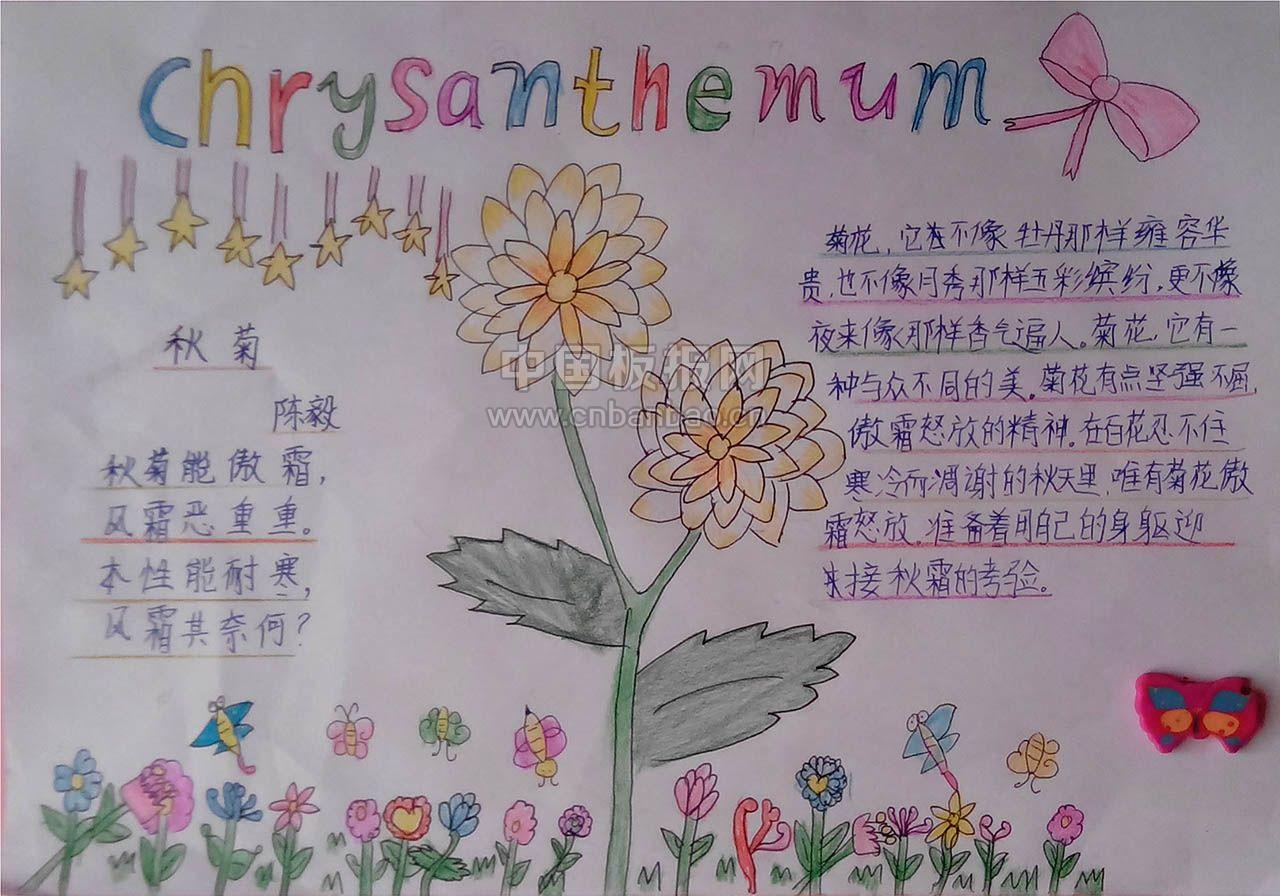 chrysanthemum
秋菊
陈毅
秋菊能傲霜，
风霜恶重重。
本性能耐寒，
风霜其奈何？
菊花，它并不像牡丹那样雍容华
贵，也不像月秀那样五彩缤纷，更不像
夜来像那样香气逼人。菊花，它有一
种与众不同的美。菊花有点坚强不屈，
傲霜怒放的精神。在百花忍不住
寒冷而凋谢的秋天里，唯有菊花傲
霜怒放，准备着用自己的身躯迎
接秋霜的考验。
中国板报网
www.cnbanbao.cn